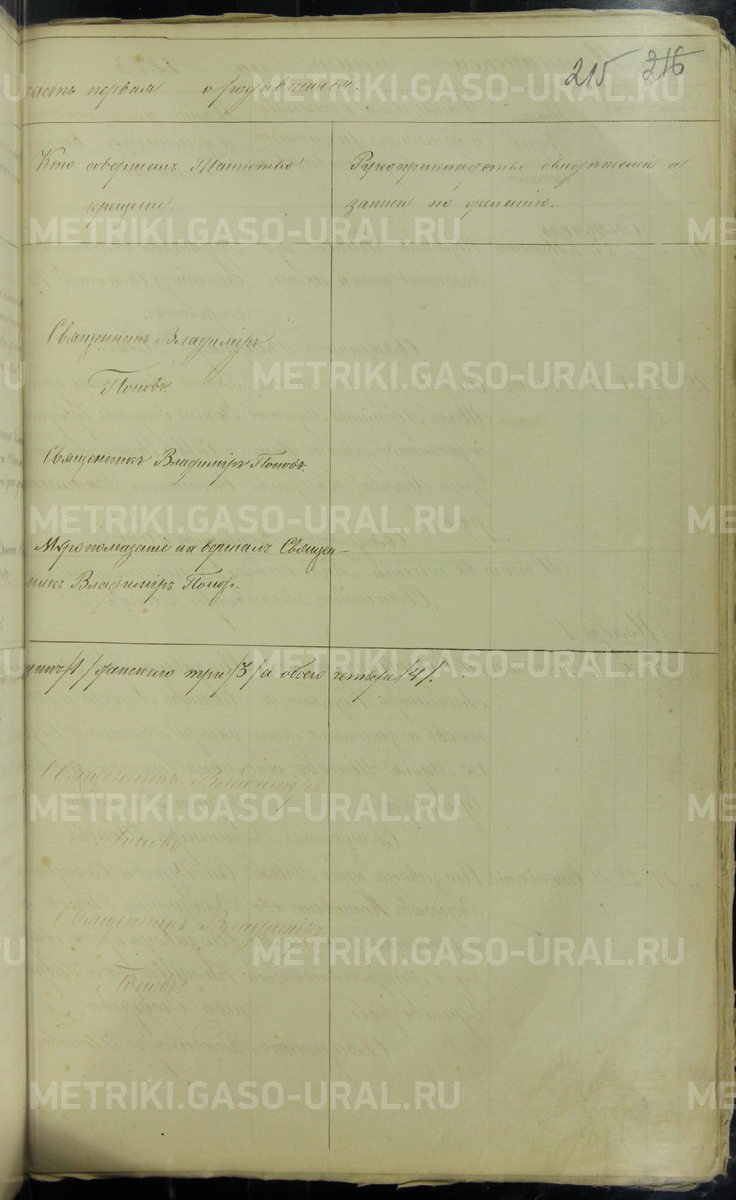 215 216
часть первая о родившихся.
Кто совершалъ Таинство
крещенія.
Рукоприкладство свидѣтелей и
записи по желанію.
Священникъ Владиміръ
Поповъ.
Священникъ Владиміръ Поповъ.
Мѵропомазаніе совершалъ Священ-
никъ Владиміръ Поповъ.
/1/ женскаго три /3/ а обоего четыре /4/.
Священникъ Владиміръ
Поповъ
Священникъ Владиміръ
Поповъ.
METRIKI.GASO-URAL.RU